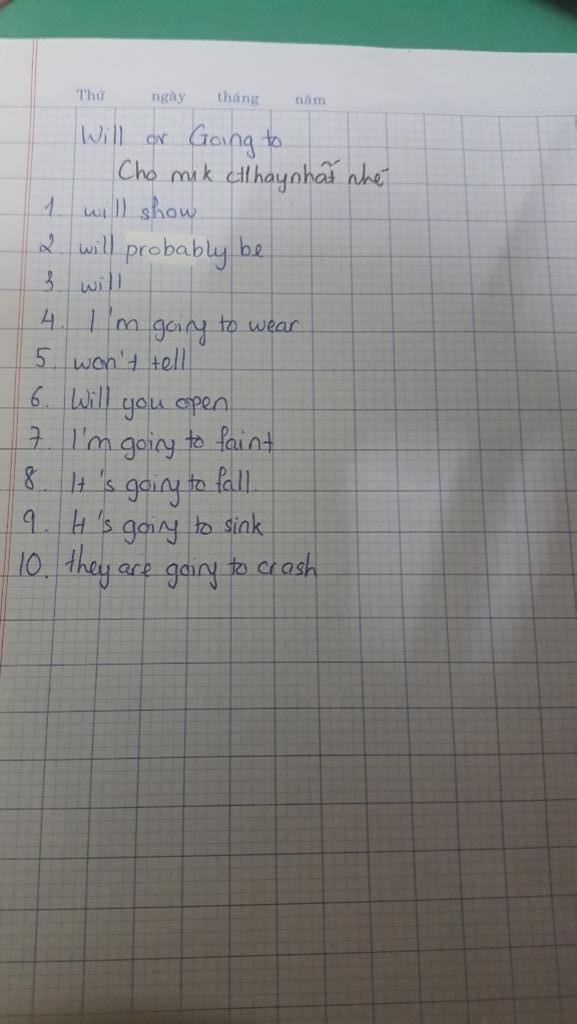 Thứ ngày tháng năm
Will or Going to
Cho mik ctlhaynhất nhé
1. will show
2. will probably be
3. will
4. I'm going to wear
5. won't tell
6. Will you open
7. I'm going to faint
8. It's going to fall.
9. It's going to sink
10. they are going to crash